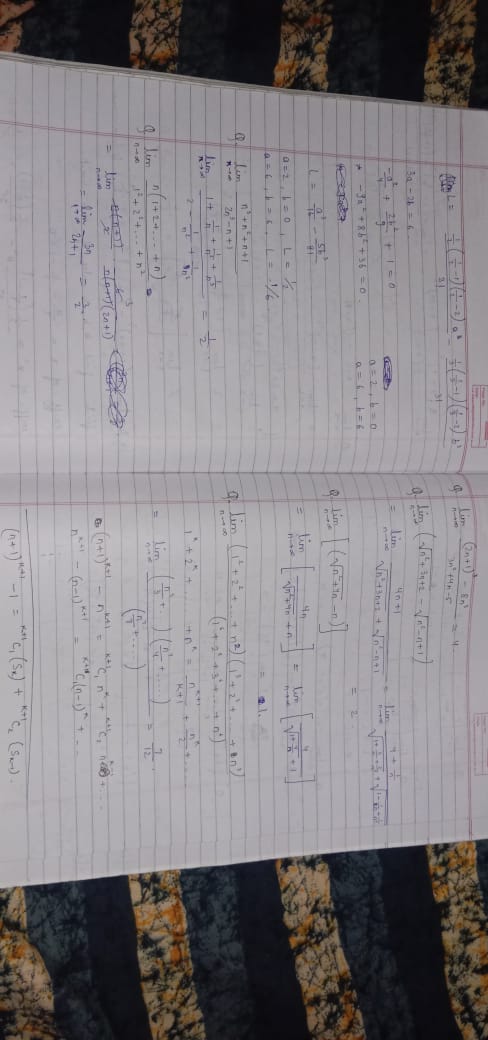 L = 1/2 (1/2 - 1)(1/2 - 2) a³ / 3! - 1/3 (1/3 - 1)(1/3 - 2) b³ / 3!
3a - 2b = 6
-a²/4 + 2b²/9 + 1 = 0
* -9a² + 8b² + 36 = 0
a = 2, b = 0
a = 6, b = 6
L = a³/16 - 5b³/81
a = 2, b = 0, L = 1/2
a = 6, b = 6, L = 1/6
Q. lim n→∞ n³ + n² + n + 1 / 2n³ - n + 1
lim n→∞ 1 + 1/n + 1/n² + 1/n³ / 2 - 1/n² + 1/n³ = 1/2
Q. lim n→∞ n(1 + 2 + ... + n) / 1² + 2² + ... + n²
= lim n→∞ 6 3 / n(n+1)(2n+1)
= lim n→∞ 3n / 2n+1 = 3/2
Q. lim n→∞ (2n+1)³ - 8n³ / 3n² + 4n - 5 = 4
Q. lim n→∞ (√n² + 3n + 2 - √n² - n + 1)
= lim n→∞ 4n + 1 / √n² + 3n + 2 + √n² - n + 1 = lim n→∞ 4 + 1/n
= 2
Q. lim n→∞ [(√n² + 4n - n)]
= lim n→∞ [4n / √n² + 4n + n] = lim n→∞ [4 / √1 + 4/n + 1]
= 2
Q. lim n→∞ (1² + 2² + ... + n²)(1³ + 2³ + ... + n³) / (1⁶ + 2⁶ + 3⁶ + ... + n⁶)
1ᵏ + 2ᵏ + ... + nᵏ = nᵏ⁺¹/k+1 + nᵏ/2 + ...
= lim n→∞ (n³/3 + ...)(n⁴/4 + ...) / (n⁷/7 + ...) = 7/12
(n+1)ᵏ⁺¹ - nᵏ⁺¹ = ᵏ⁺¹C₁ nᵏ + ᵏ⁺¹C₂ nᵏ⁻¹ + ...
nᵏ⁺¹ - (n-1)ᵏ⁺¹ = ᵏ⁺¹C₁ (n-1)ᵏ + ...
(n+1)ᵏ⁺¹ - 1 = ᵏ⁺¹C₁ (Sₖ) + ᵏ⁺¹C₂ (Sₖ₋₁)